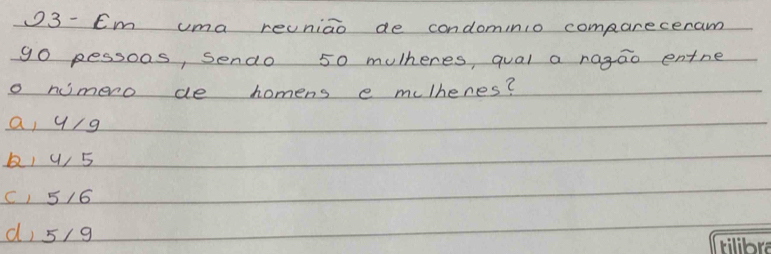 03- Em uma reunião de condomínio compareceram
90 pessoas, sendo 50 mulheres, qual a razão entre
o número de homens e mulheres?
a) 4/9
b) 4/5
c) 5/6
d) 5/9
tilibra